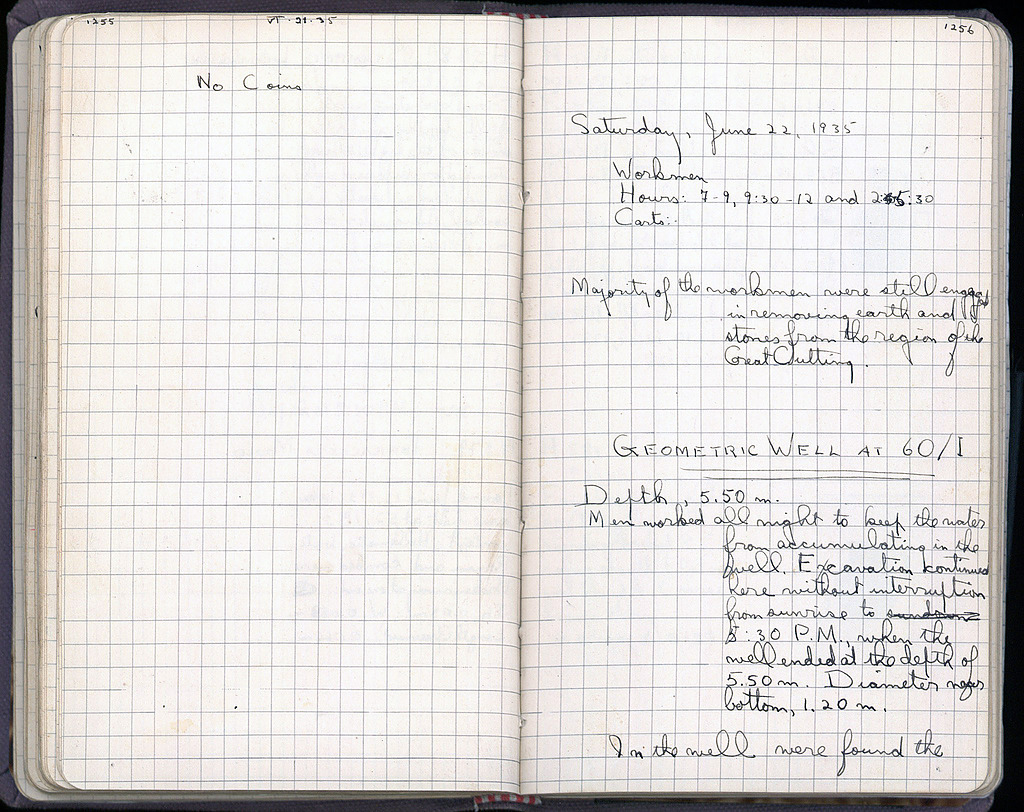 1255
VI.21.35
No Coins
1256
Saturday, June 22, 1935
Workmen
Hours: 7-9, 9:30-12 and 2-5:30
Carts:
Majority of the workmen were still engaged
in removing earth and
stones from the region of the
Great Cutting.
GEOMETRIC WELL AT 60/I
Depth, 5.50 m.
Men worked all night to keep the water
from accumulating in the
well. Excavation continued
here without interruption
from sunrise to
5:30 P.M., when the
well ended at the depth of
5.50 m. Diameter near
bottom, 1.20 m.
In the well were found the